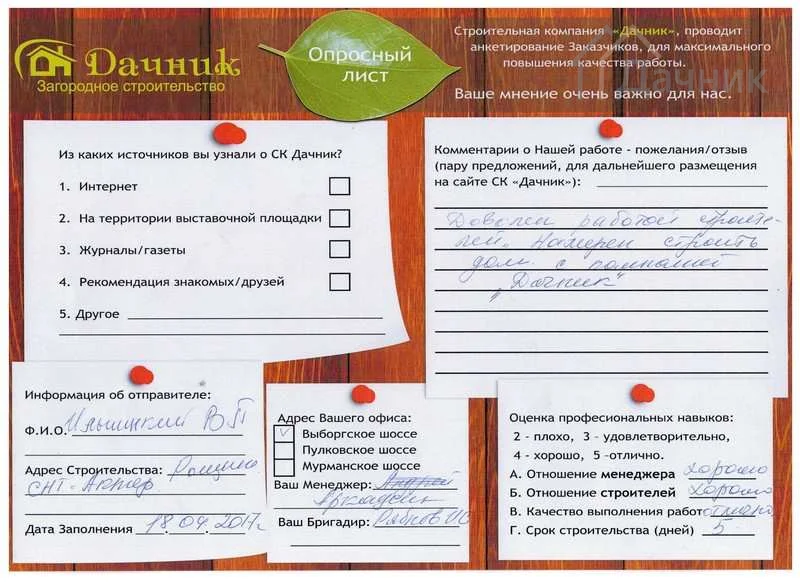 Дачник
Загородное строительство
Опросный
лист
Строительная компания «Дачник», проводит
анкетирование Заказчиков, для максимального
повышения качества работы.
Ваше мнение очень важно для нас.
Дачник
Из каких источников вы узнали о СК Дачник?
1. Интернет
2. На территории выставочной площадки
3. Журналы/газеты
4. Рекомендация знакомых/друзей
5. Другое
Комментарии о Нашей работе - пожелания/отзыв
(пару предложений, для дальнейшего размещения
на сайте СК «Дачник»):
Доволен работой строите-
лей. Намерен строить
дом с компанией
"Дачник"
Информация об отправителе:
Ф.И.О. ВП
Адрес Строительства: Рощино
СНТ
Дата Заполнения 18.04.2017г
Адрес Вашего офиса:
V Выборгское шоссе
Пулковское шоссе
Мурманское шоссе
Ваш Менеджер: Андрей
Аркадьевич
Ваш Бригадир:
Оценка професиональных навыков:
2 - плохо, 3 - удовлетворительно,
4 - хорошо, 5 -отлично.
А. Отношение менеджера хорошо
Б. Отношение строителей хорошо
В. Качество выполнения работ отлично
Г. Срок строительства (дней) 5